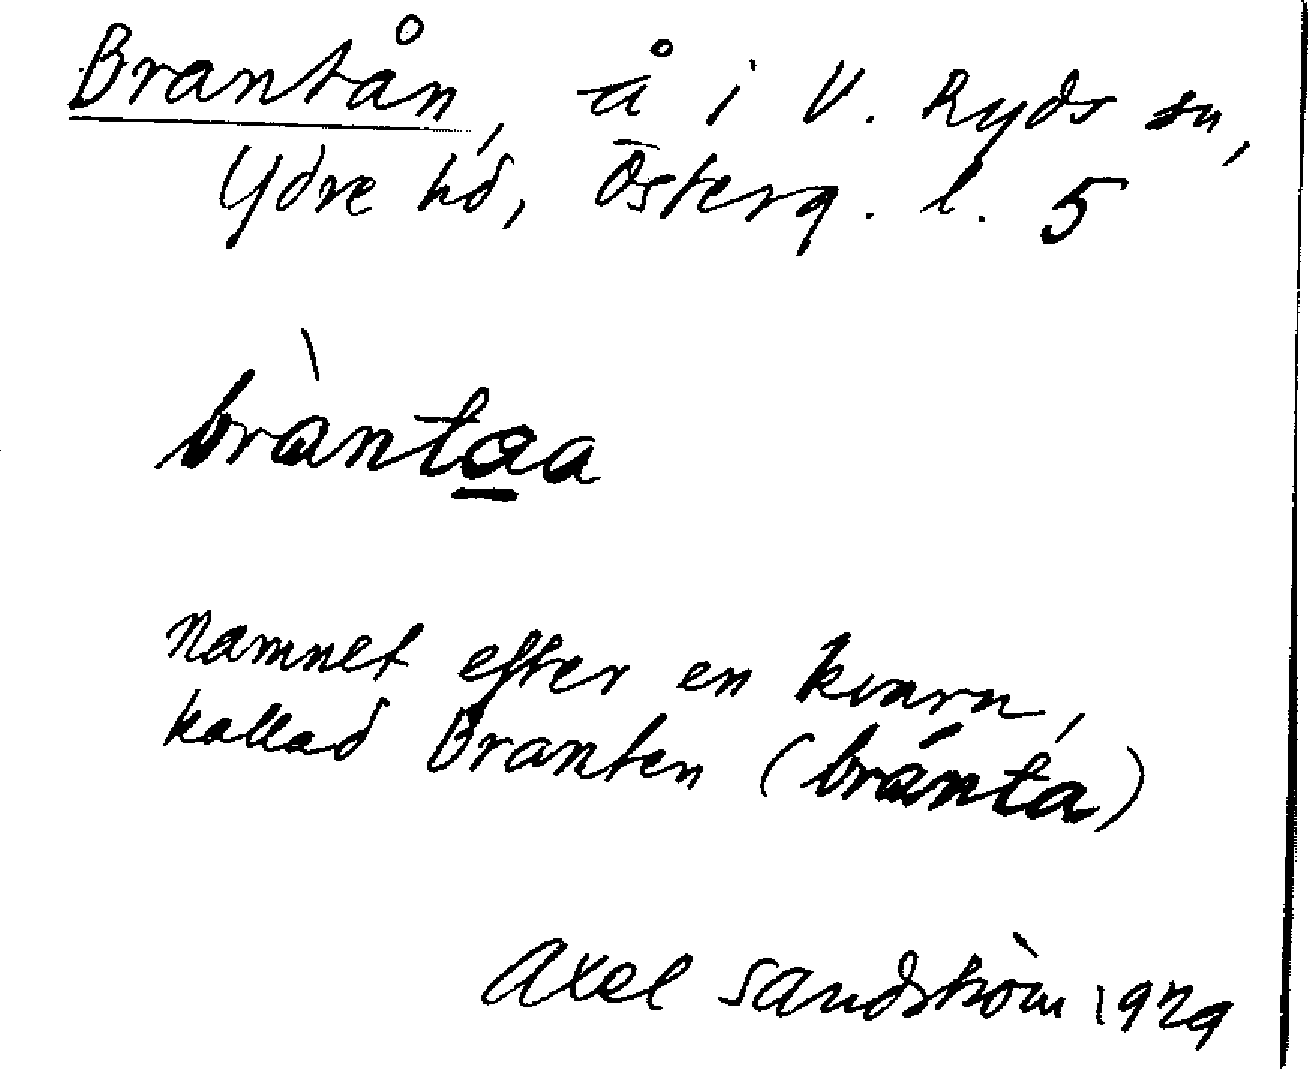 Brantån, å i V. Ryds sn,
Ydre hd, Österg. l. 5
bràntaa
Namnet efter en kvarn,
kallad Branten (bránta)
Axel Sandström 1929